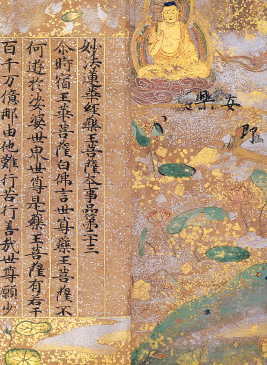 即
安樂
妙法蓮華経藥王菩薩本事品第二十三
尒時宿王華菩薩白佛言世尊藥王菩薩云
何遊於娑婆世界世尊是藥王菩薩有若干
百千万億那由他難行苦行善哉世尊願少